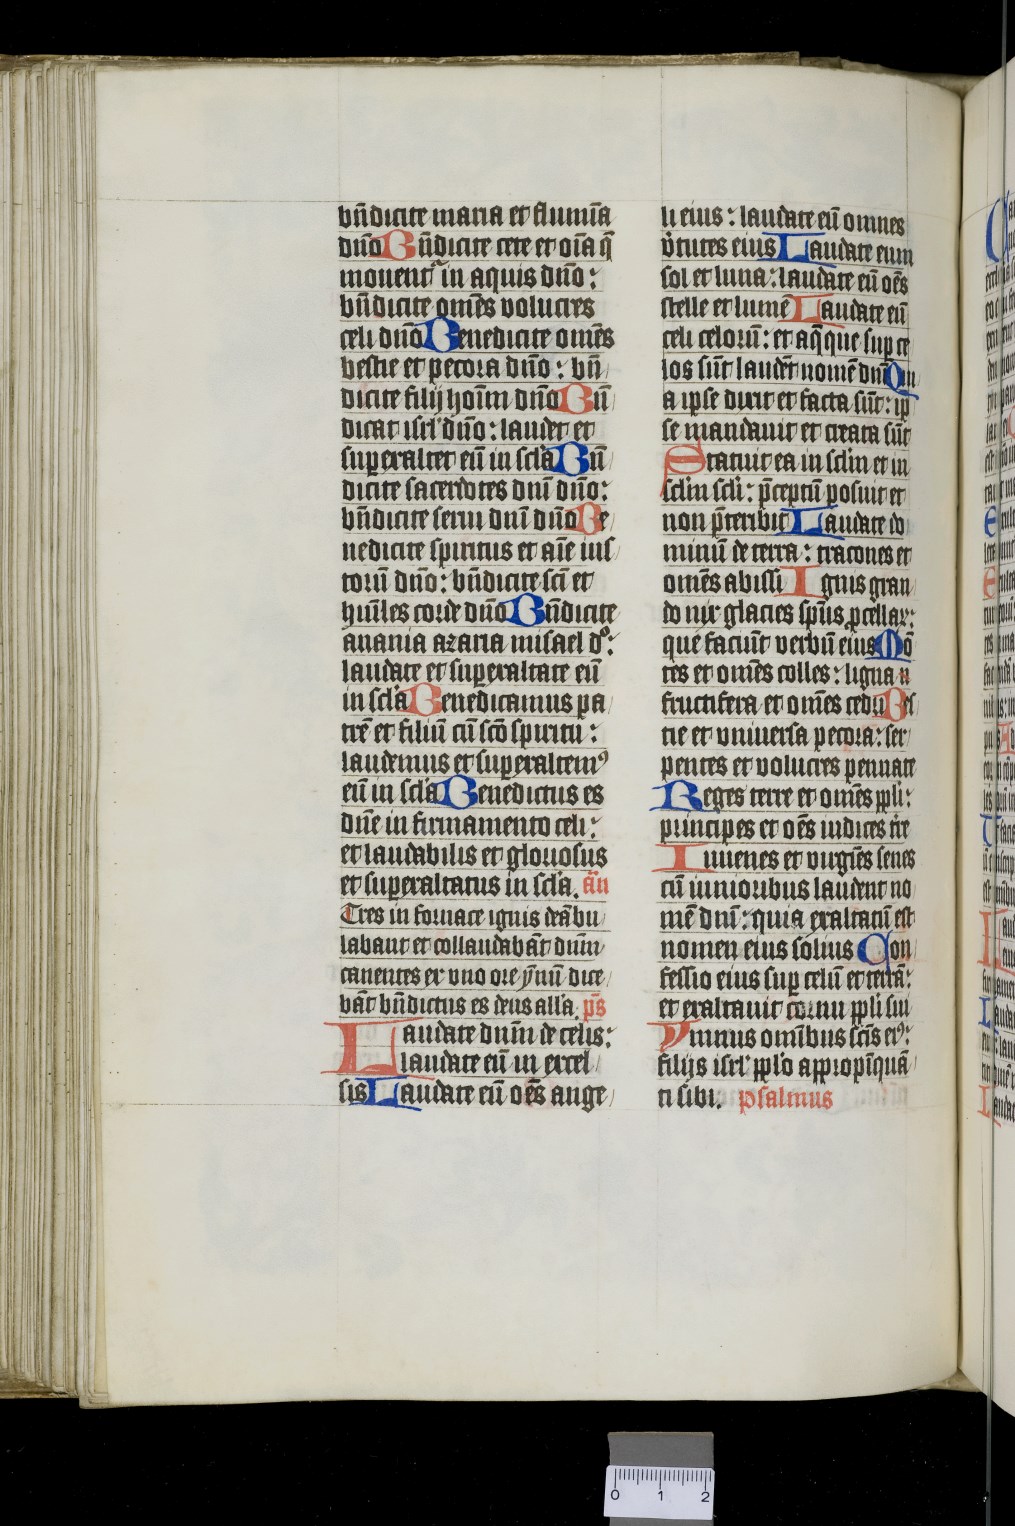 bn̄dicite maria et flumīa
dn̄o Bn̄dicite cete et oīa q̄
mouentᷣ in aquis dn̄o:
bn̄dicite om̄es volucres
celi dn̄o Benedicite om̄es
bestie et pecora dn̄o: bn̄
dicite filij hoīm dn̄o Bn̄
dicat isrl̓ dn̄o: laudet et
superaltet eū in scl̓a Bn̄
dicite sacerdotes dn̄i dn̄o:
bn̄dicite serui dn̄i dn̄o Be
nedicite spiritus et aīe ius
torū dn̄o: bn̄dicite scī et
hūiles corde dn̄o Bn̄dicite
anania azaria misael d̊:
laudate et superaltate eū
in scl̓a Benedicamus pa
trē et filiū cū scō spiritu:
laudemus et superaltemꝰ
eū in scl̓a Benedictus es
dn̄e in firmamento celi:
et laudabilis et gloriosus
et superaltatus in scl̓a. an̄
Tres in fornace ignis deābu
labant et collaudabāt dn̄m
canentes ex vno ore ẏnū dice
bāt bn̄dictus es deus all̓a. ps̄
Laudate dn̄m de celis:
laudate eū in excel
sis Laudate eū oēs ange
li eius: laudate eū omnes
v̓tutes eius Laudate eum
sol et luna: laudate eū oēs
stelle et lumē Laudate eū
celi celorū: et aq̄ que suꝑ ce
los sūt laudēt nomē dn̄i Qui
a ipse dixit et facta sūt: ip
se mandauit et creata sūt
Statuit ea in scl̓m et in
scl̓m scl̓i: p̄ceptū posuit et
non p̄teribit Laudate do
minū de terra: tracones et
om̄es abissi Ignis gran
do nix glacies sp̄us ꝓcellaꝝ:
que faciūt verbū eius Mō
tes et om̄es colles: ligna
fructifera et om̄es cedri Bes
tie et vniuersa pecora: ser
pentes et volucres pennate
Reges terre et om̄es ppl̓i:
principes et oēs iudices tr̄e
Iuuenes et virgīes senes
cū iunioribus laudent no
mē dn̄i: quia exaltatū est
nomen eius solius Con
fessio eius suꝑ celū et terrā:
et exaltauit cornu ppl̓i sui
Ymnus omībus scīs eiꝰ:
filijs isrl̓ ppl̓o appropīquā
ti sibi. psalmus
0 1 2